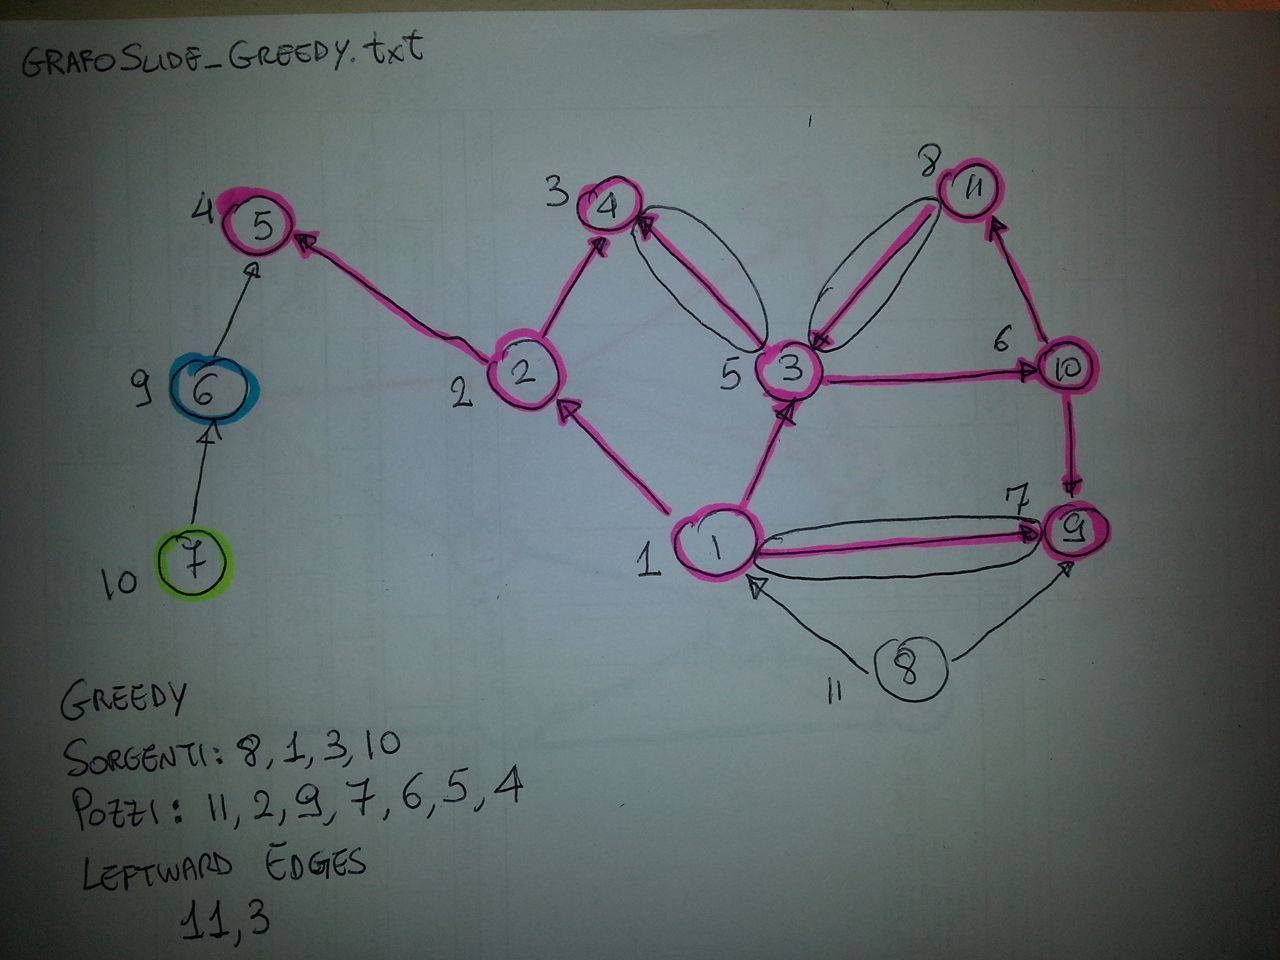 GRAFOSLIDE_GREEDY.txt
8
11
4
5
3
4
6
10
5
3
2
2
9
6
7
9
1
1
10
7
11
8
GREEDY
SORGENTI: 8, 1, 3, 10
POZZI: 11, 2, 9, 7, 6, 5, 4
LEFTWARD EDGES
11, 3